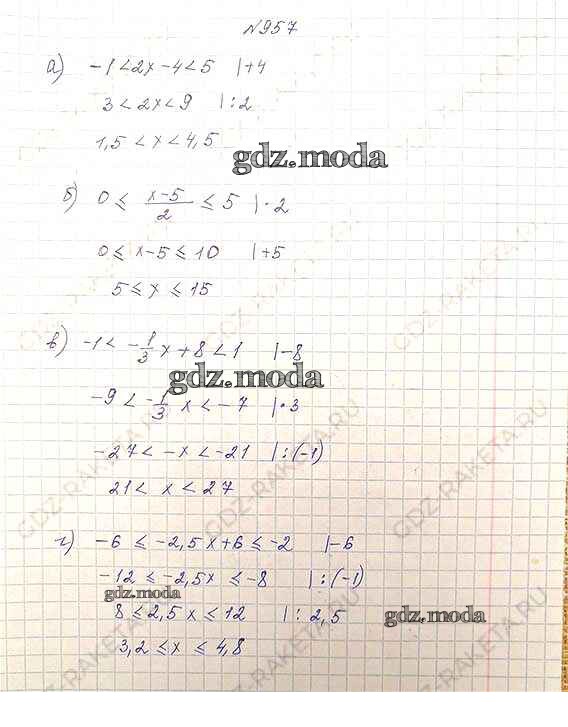 №957
а) -1 < 2x - 4 < 5 |+4
3 < 2x < 9 |:2
1,5 < x < 4,5
gdz.moda
б) 0 ≤ (x-5)/2 ≤ 5 |·2
0 ≤ x-5 ≤ 10 |+5
5 ≤ x ≤ 15
в) -1 < -1/3 x + 8 < 1 |-8
gdz.moda
-9 < -1/3 x < -7 |·3
-27 < -x < -21 |:(-1)
21 < x < 27
г) -6 ≤ -2,5x+6 ≤ -2 |-6
-12 ≤ -2,5x ≤ -8 |:(-1)
gdz.moda
8 ≤ 2,5x ≤ 12 |: 2,5
gdz.moda
3,2 ≤ x ≤ 4,8
GDZ-RAKETA.RU
GDZ-RAKETA.RU
GDZ-RAKETA.RU
GDZ-RAKETA.RU